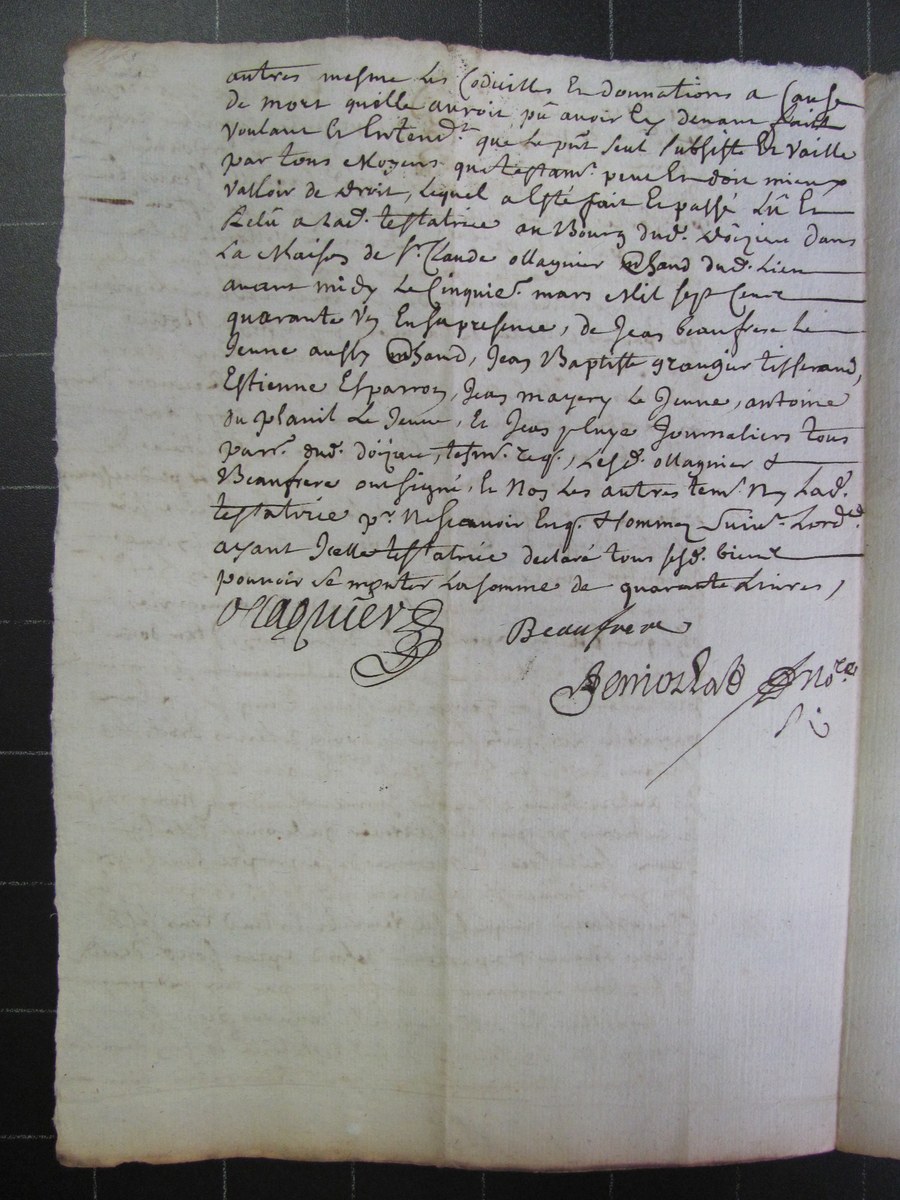 autres mesme les Codicilles Et donnations a Cause
de mort quille auroit pû avoir Cy devant faitt
voulant Et Entend.t que Le pnt seul subsiste Et vaille
par tous Moyens que testam.t peut Et doit mieux
valloir de Droit, Lequel a Esté fait Et passé Lû Et
Relû a Lad. testatrice au Bourg dud. dôizieu dans
La Maison de Sr. Claude ollagnier mhand dud. Lieu
avant midy Le Cinquie.e mars Mil sept Cent
quarante En sa presence, de Jean beaufrere Le
Jeune aussy mhand, Jean Baptiste granger tisserand,
Estienne Esparron, Jean mayery Le Jeune, antoine
du planil Le Jeune, Et Jean pluye Journaliers tous
parr. dud. doizieu, tesm. req., Lesd. ollagnier &
Beaufrere ont signé, Et Non Les autres tem. Ny Lad.
testatrice pr. Ne scavoir Enq. & sommez suiv.t Lord.e
ayant Jcelle testatrice declaré tous sesd. biens
pouvoir se monter La somme de quarante Livres,
ollagnier
Beaufrere
No.re